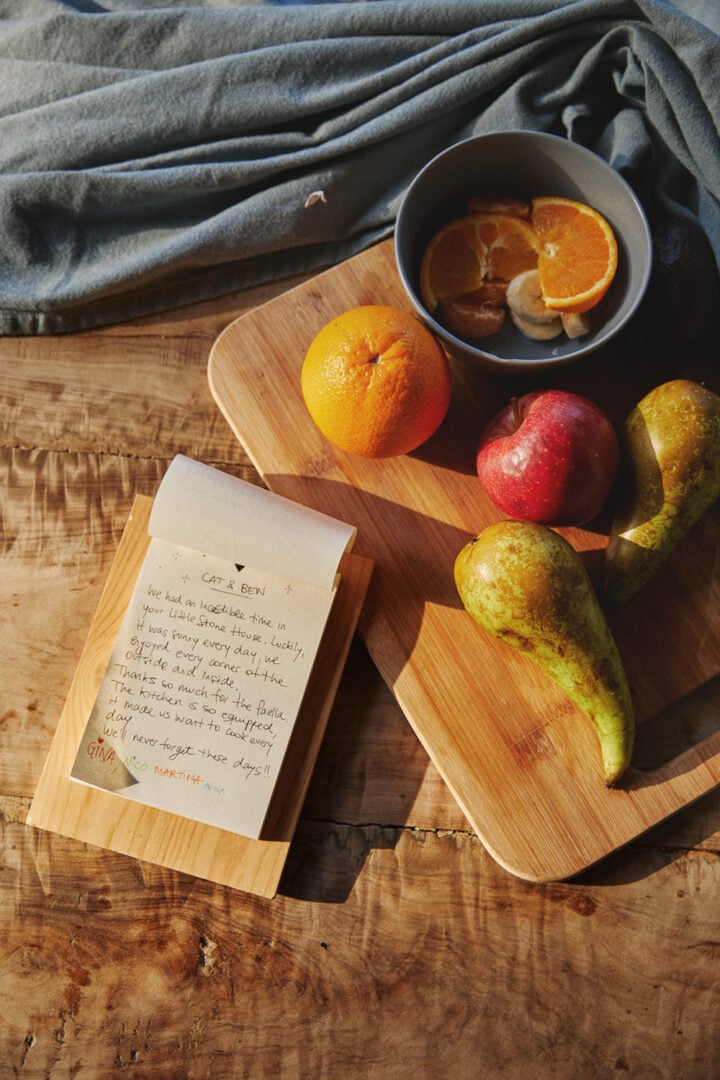 CAT & BEN
We had an incredible time in
your Little Stone House. Luckily,
it was sunny every day, we
enjoyed every corner of the
outside and inside.
Thanks so much for the paella.
The kitchen is so equipped,
it made us want to cook every
day
We'll never forget these days!!
GINA, NICO MARTINA ANNA